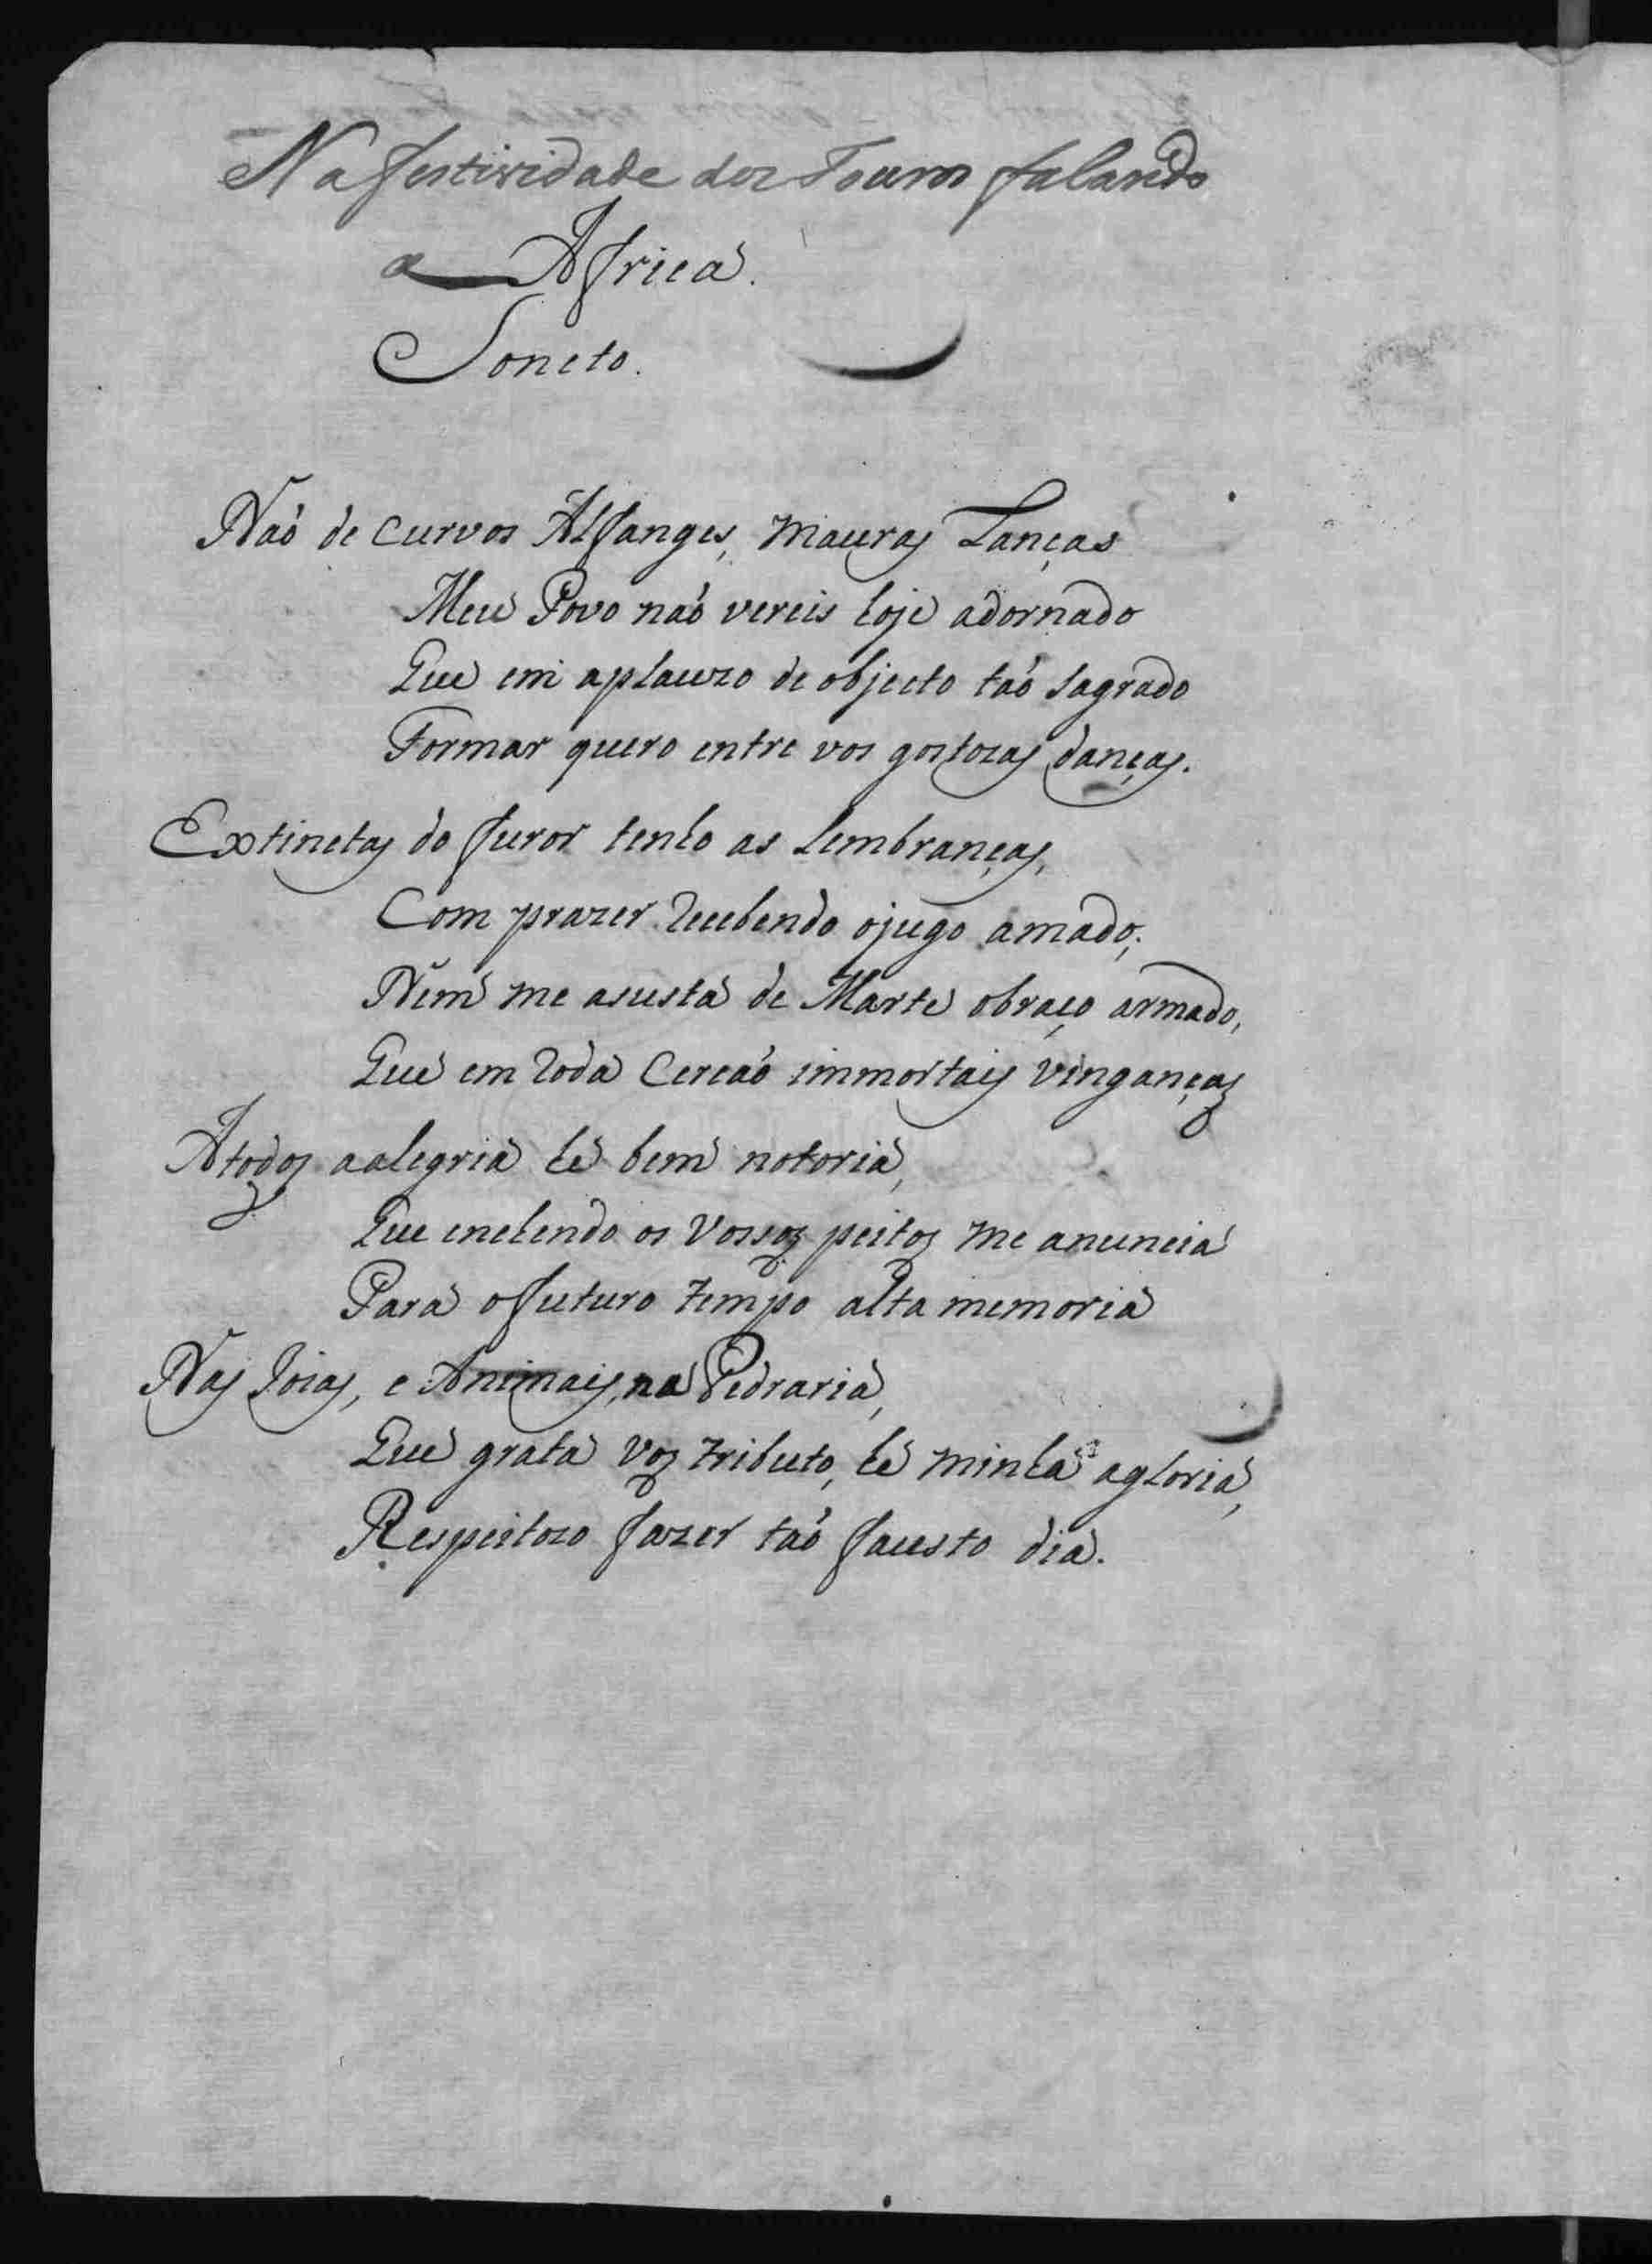 Na festividade dos Touros falando
a Africa.
Soneto.
Naó de curvos Alfanges, Mauras Lanças
Meu Povo naó vereis hoje adornado
Que em aplauzo de objecto taó sagrado
Formar quero entre vos gostozas danças.
Extinctas do furor tenho as lembranças,
Com prazer recebendo ojugo amado;
Nem me asusta de Marte obraço armado,
Que em roda Cercaó immortais vinganças
Atodos aalegria hé bem notoria,
Que enchendo os Vossos peitos me anuncia
Para ofuturo tempo alta memoria
Nas Joias, e Animais, na Pedraria,
Que grata vos tributo, hé minha agloria,
Respeitozo fazer taó fausto dia.